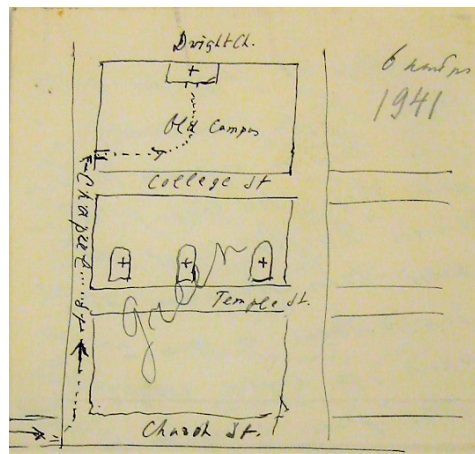 Dwight Ch.
1941
Old Campus
College St
Chapel
Green
Temple St.
Church St.